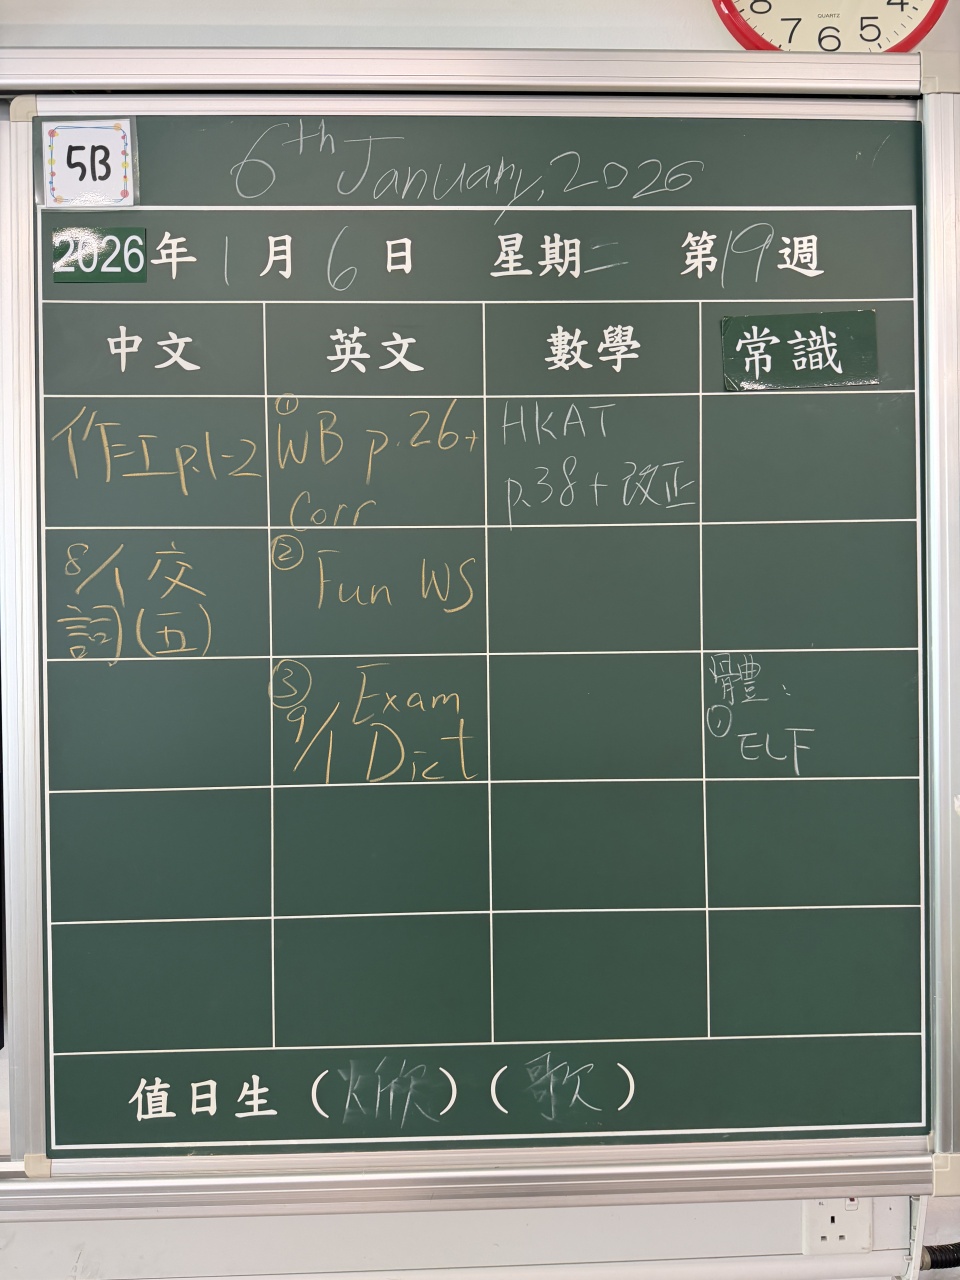 8 7 6 5 4
QUARTZ
5B
6th January, 2026
2026年1月6日 星期二 第19週
中文 英文 數學 常識
作工p.1-2
① WB p.26+
Corr
HKAT
p.38+改正
8/1 交
詞(五)
② Fun WS
③ 9/1 Exam
Dict
體:
① ELF
值日生（焮）（歌）